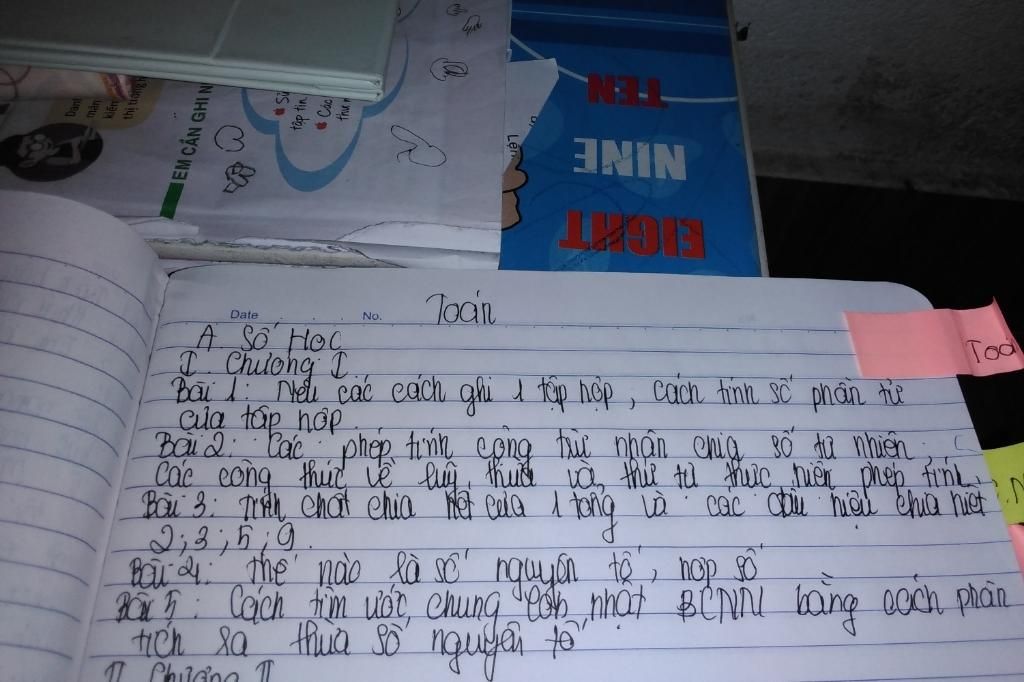 Dành
mản
kiến
thị trường
EM CẦN GHI N
Sử
tập tin
Các
thư m
TEN
NINE
EIGHT
Date . . . No.
Toán
A Số Học
I. Chương I
Toá
Bài 1: Nêu các cách ghi 1 tập hợp, cách tính số phần tử
của tập hợp.
Bài 2: Các phép tính cộng trừ nhân chia số tự nhiên,
Các công thức về luỹ thừa và thứ tự thực hiện phép tính.
Bài 3: Tính chất chia hết của 1 tổng và các dấu hiệu chia hết
2; 3; 5; 9.
Bài 4: Thế nào là số nguyên tố, hợp số
Bài 5: Cách tìm ước chung lớn nhất BCNN bằng cách phân
tích ra thừa số nguyên tố
II Chương II